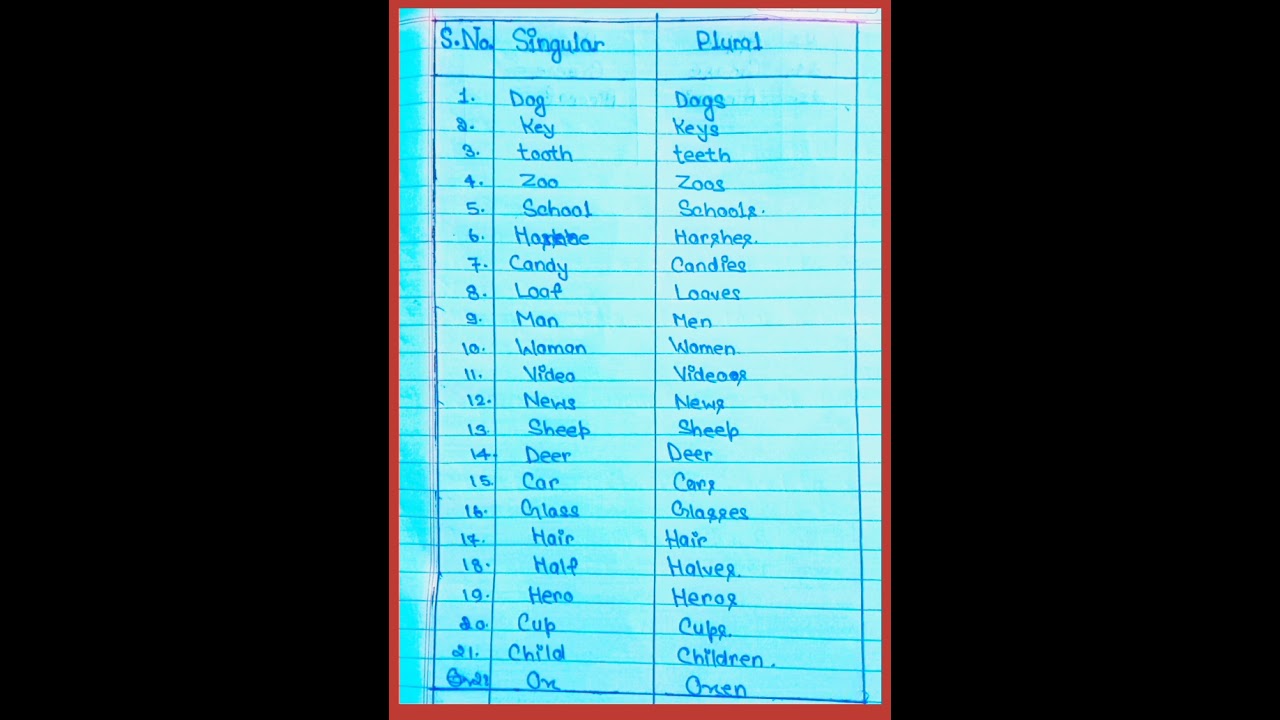 S.No. Singular Plural
1. Dog Dogs
2. Key Keys
3. tooth teeth
4. Zoo Zoos
5. School Schools.
6. Harshes.
7. Candy Candies
8. Loaf Loaves
9. Man Men
10. Woman Women
11. Video Videos
12. News News
13. Sheep Sheep
14. Deer Deer
15. Car Cars
16. Glass Glasses
17. Hair Hair
18. Half Halves.
19. Hero Heros
20. Cup Cups.
21. Child Children.
22 Ox Oxen